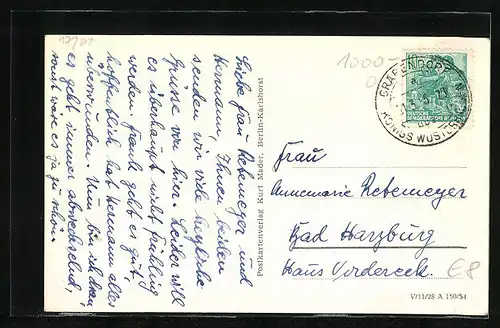 Liebe Frau Rebemeyer und
Hermann, Ihnen beiden
senden wir viele herzliche
Grüsse von hier. Leider will
es überhaupt nicht Frühling
werden. Frank geht es gut,
hoffentlich hat Hermann alles
überwunden. Nun bin ich dran,
es geht immer abwechselnd,
sonst wäre es ja zu schön.
Postkartenverlag Kurt Mader, Berlin-Karlshorst
1000-
GRÄFENDORF
KÖNIGS WUSTERH
DEUTSCHE
DEMOKRATISCHE REPUBLIK
Frau
Annemarie Rebemeyer
Bad Harzburg
Haus Vordereck.
E8
V/11/28 A 150/54